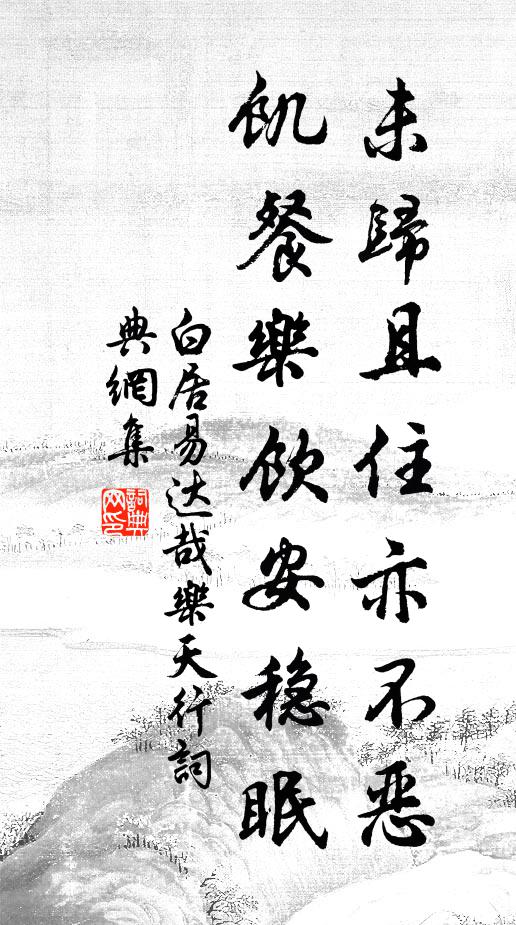 未歸且住亦不恶
飢餐樂飲安穏眠
白居易达哉樂天行詞
典網集
詞典網印